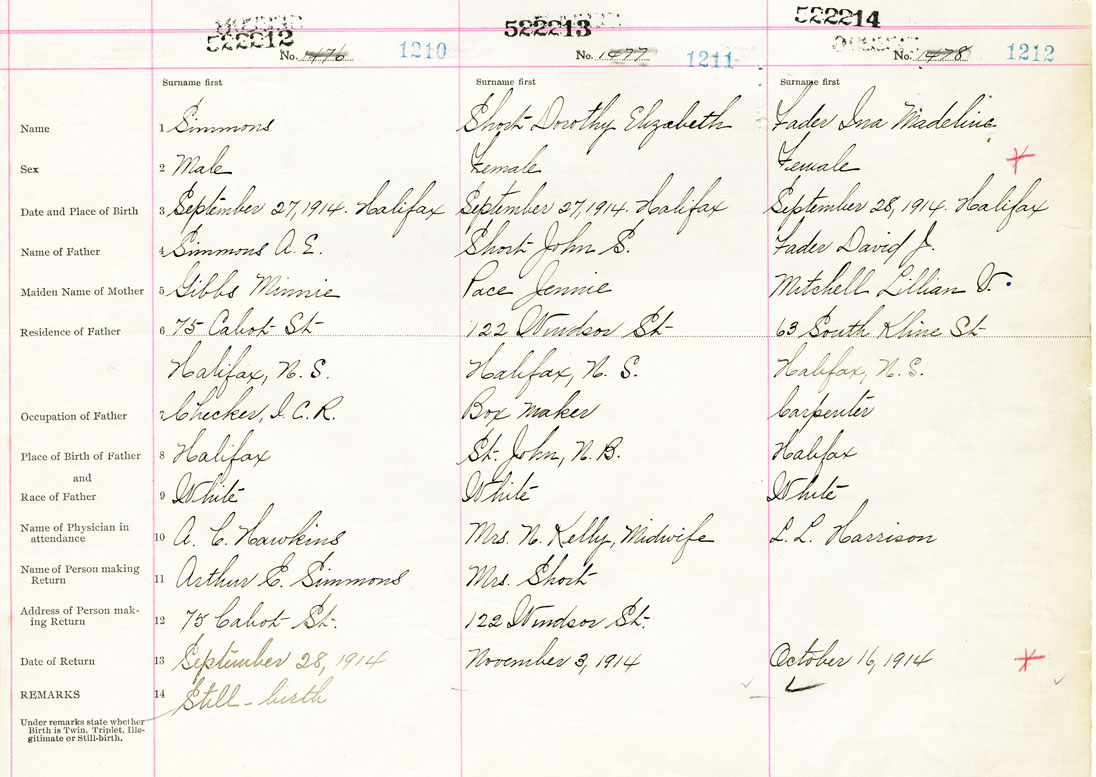 522212
522213
522214
No. 1476 1210
No. 1477 1211
No. 1478 1212
Surname first Surname first Surname first
Name 1 Simmons Short Dorothy Elizabeth Fader Ina Madeline
Sex 2 Male Female Female
Date and Place of Birth 3 September 27, 1914. Halifax September 27, 1914. Halifax September 28, 1914. Halifax
Name of Father 4 Simmons A. E. Short John S. Fader David J.
Maiden Name of Mother 5 Gibbs Minnie Pace Jennie Mitchell Lillian V.
Residence of Father 6 75 Cabot St 122 Windsor St 63 South Kline St
Halifax, N. S. Halifax, N. S. Halifax, N. S.
Occupation of Father 7 Checker, I. C. R. Box maker Carpenter
Place of Birth of Father 8 Halifax St. John, N. B. Halifax
and
Race of Father 9 White White White
Name of Physician in
attendance 10 A. C. Hawkins Mrs. N. Kelly, Midwife L. L. Harrison
Name of Person making
Return 11 Arthur E. Simmons Mrs. Short
Address of Person mak-
ing Return 12 75 Cabot St. 122 Windsor St.
Date of Return 13 September 28, 1914 November 3, 1914 October 16, 1914
REMARKS 14 Still-birth
Under remarks state whether
Birth is Twin, Triplet, Ille-
gitimate or Still-birth.